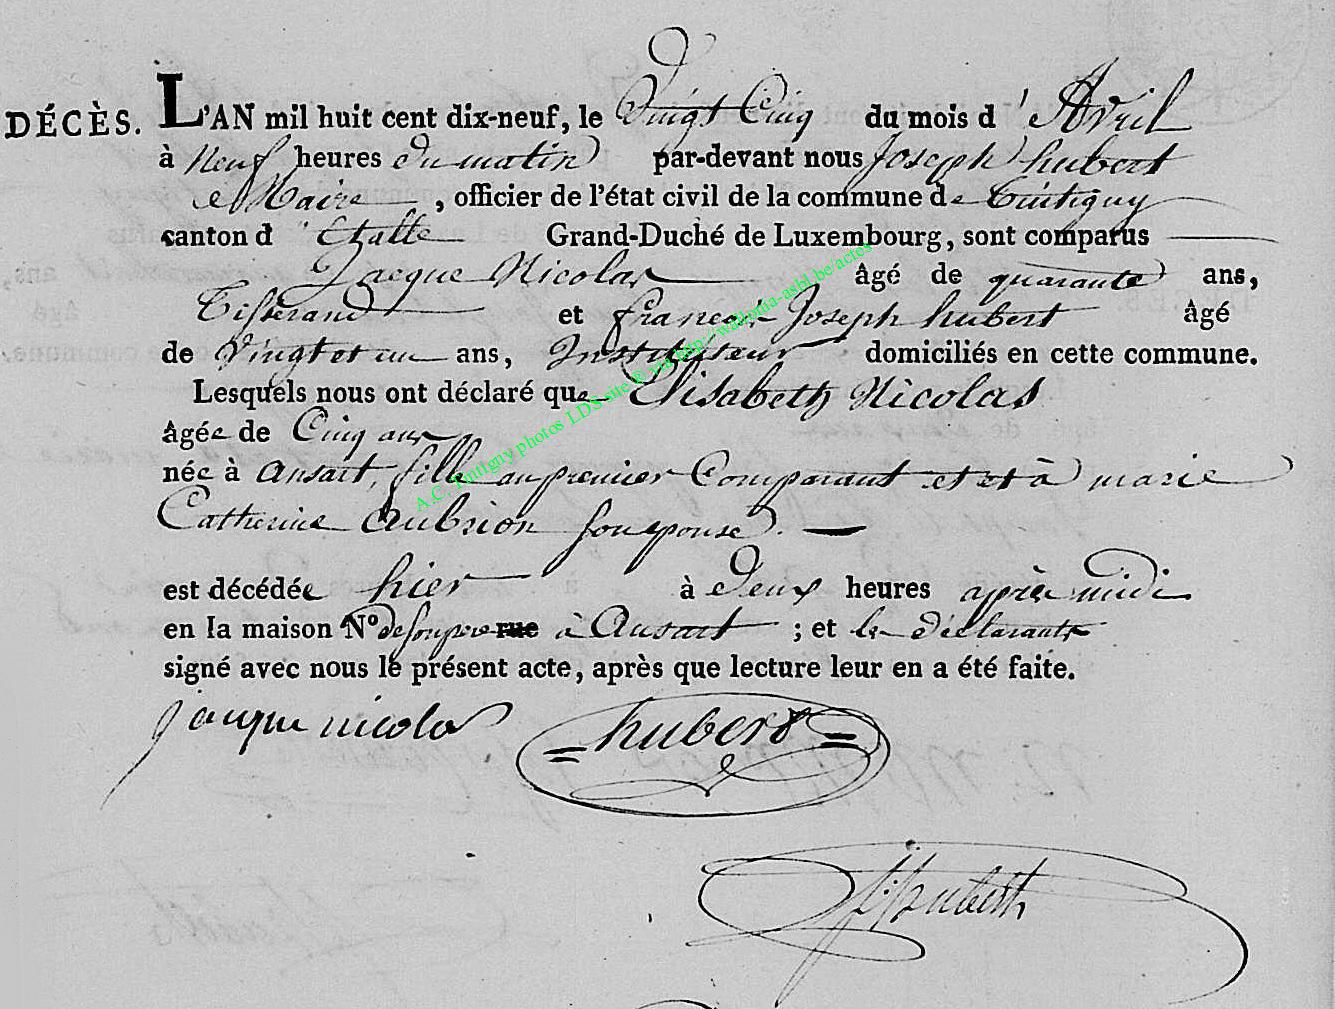 DÉCÈS. L'AN mil huit cent dix-neuf, le Vingt Cinq du mois d' Avril
à Neuf heures du matin par-devant nous Joseph hubert
Maire, officier de l'état civil de la commune de Tintigny
canton d' Etalle Grand-Duché de Luxembourg, sont comparus
Jacque Nicolas âgé de quarante ans,
Tisserand et françois Joseph hubert âgé
de Vingt et un ans, Instituteur domiciliés en cette commune.
Lesquels nous ont déclaré que Elisabeth Nicolas
âgée de Cinq ans
née à ansart, fille au premier Comparant et et à marie
Catherine Aubrion son epouse.
est décédée hier à deux heures après midi
en la maison N° de son pere rue à Ansart ; et les déclarants
signé avec nous le présent acte, après que lecture leur en a été faite.
jacque nicolas hubert
hubert
A.C. Tintigny photos LDS site ® via http://wallonia-asbl.be/actes